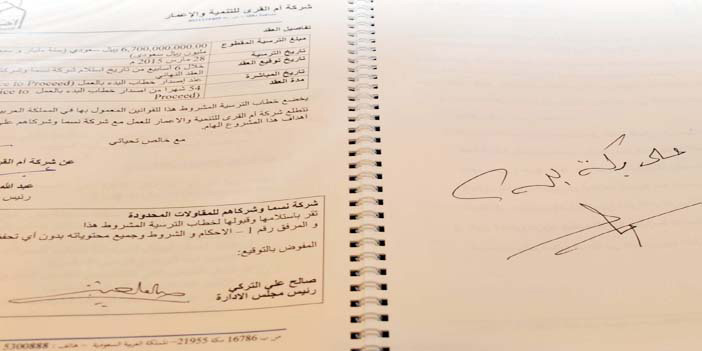 شركة أم القرى للتنمية والإعمار
تفاصيل العقد
مبلغ الترسية المقطوع 6,700,000,000.00 ريال سعودي (ستة مليار و
مليون ريال سعودي)
تاريخ الترسية 28 مارس 2015 م
تاريخ توقيع العقد خلال 6 أسابيع من تاريخ استلام شركة نسما وشركا
العقد النهائي
تاريخ المباشرة عند إصدار خطاب البدء بالعمل (ce to Proceed
مدة العقد 54 شهرا من اصدار خطاب البدء بالعمل (ice to
Proceed)
يخضع خطاب الترسية المشروط هذا للقوانين المعمول بها في المملكة العربي
تتطلع شركة أم القرى للتنمية والاعمار للعمل مع شركة نسما وشركاهم على
أهداف هذا المشروع الهام.
مع خالص تحياتي
عن شركة أم القر
عبد الله
رئيس
شركة نسما وشركاهم للمقاولات المحدودة
تقر باستلامها وقبولها لخطاب الترسية المشروط هذا
و المرفق رقم 1 – الاحكام و الشروط وجميع محتوياته بدون أي تحفظ
المفوض بالتوقيع:
صالح علي التركي
رئيس مجلس الادارة
ص ب 16786 مكة 21955- المملكة العربية السعودية - هاتف : 5300888
على بركة الله